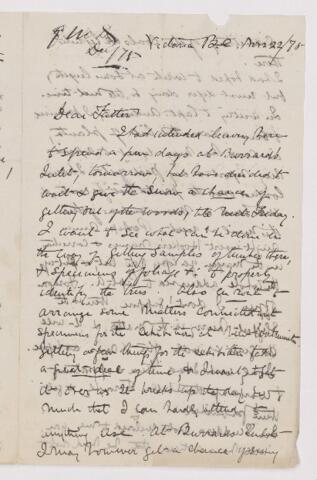 Dec /75
Victoria B.C. Nov 22/75
Dear Father
I had intended leaving here
to spend a few days at Burrard's
Inlet tomorrow, but have decided to
wait & give the snow a chance of
getting out of the woods, till next Friday.
I want to see what can be done in
the way of getting samples of timber there,
& specimens of foliage &c. to properly
identify the trees. Also want to
arrange some matters connected with
specimens for the exhibition at
getting a few things for the exhibition takes
a great deal of time &
it over. It breaks up the day so
much that I can hardly attend to
anything else. At Burrard's Inlet
I may however get a chance of